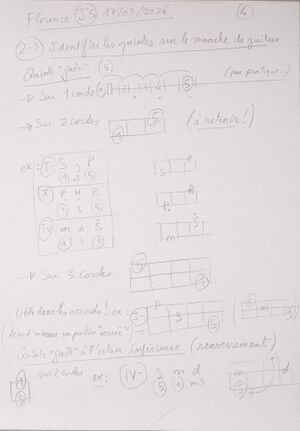 Florence J5 17/03/2026 4
2.3 Identifier les quintes sur le manche de guitare
Quinte "juste" (5)
→ Sur 1 corde 1 2 3 4 5 (peu pratique)
→ Sur 2 cordes 1 5 (à retenir!)
ex: I- S , P
1 3 5
S P
V P N R
1 3 5
P R
IV m d Ṡ
1 3 5
m Ṡ
→ Sur 3 cordes 5 1
Utile dans les accords! ex: I- P S
(Accord mineur en position "serrée")
Quinte "juste" à l'octave inférieure (renversement)
sur 2 cordes ex: IV- S m d
5 1 m3
1
5
m d